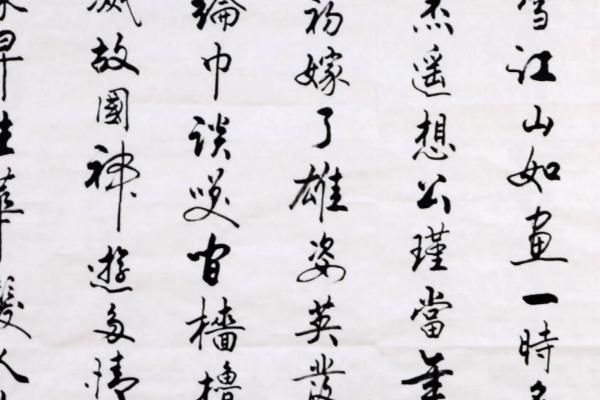 雪江山如畫一時多
杰遥想公瑾當年
初嫁了雄姿英發
綸巾談咲间檣櫓
滅故國神遊多情
早生華髮人